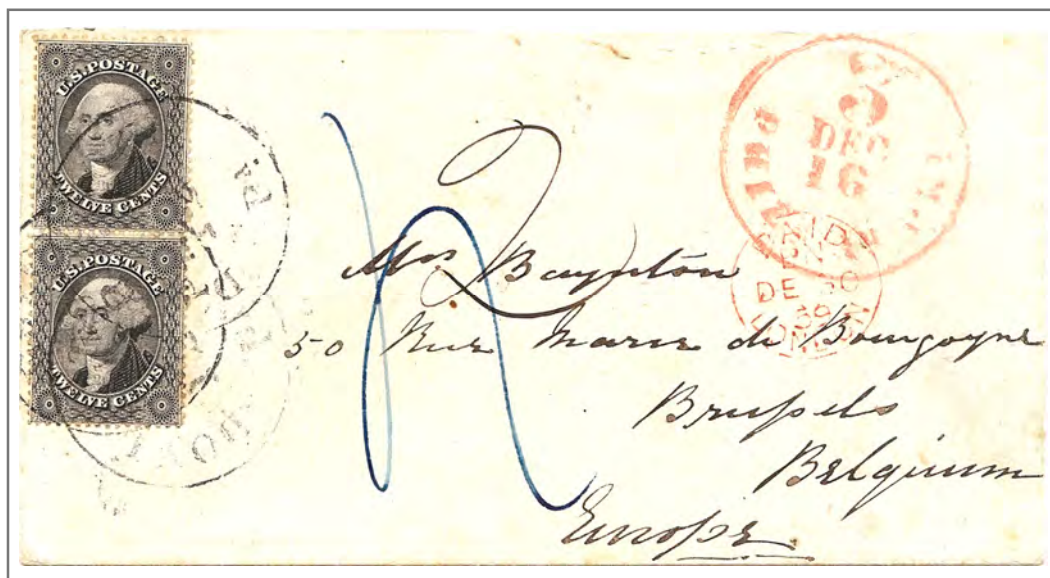 U.S. POSTAGE
TWELVE CENTS
U.S. POSTAGE
TWELVE CENTS
3
DEC
16
PHIL
PA.
PAID
DE 30
59
LONDON
2
Mrs Baynton
50 Rue Marie de Bourgogne
Brussels
Belgium
Europe.